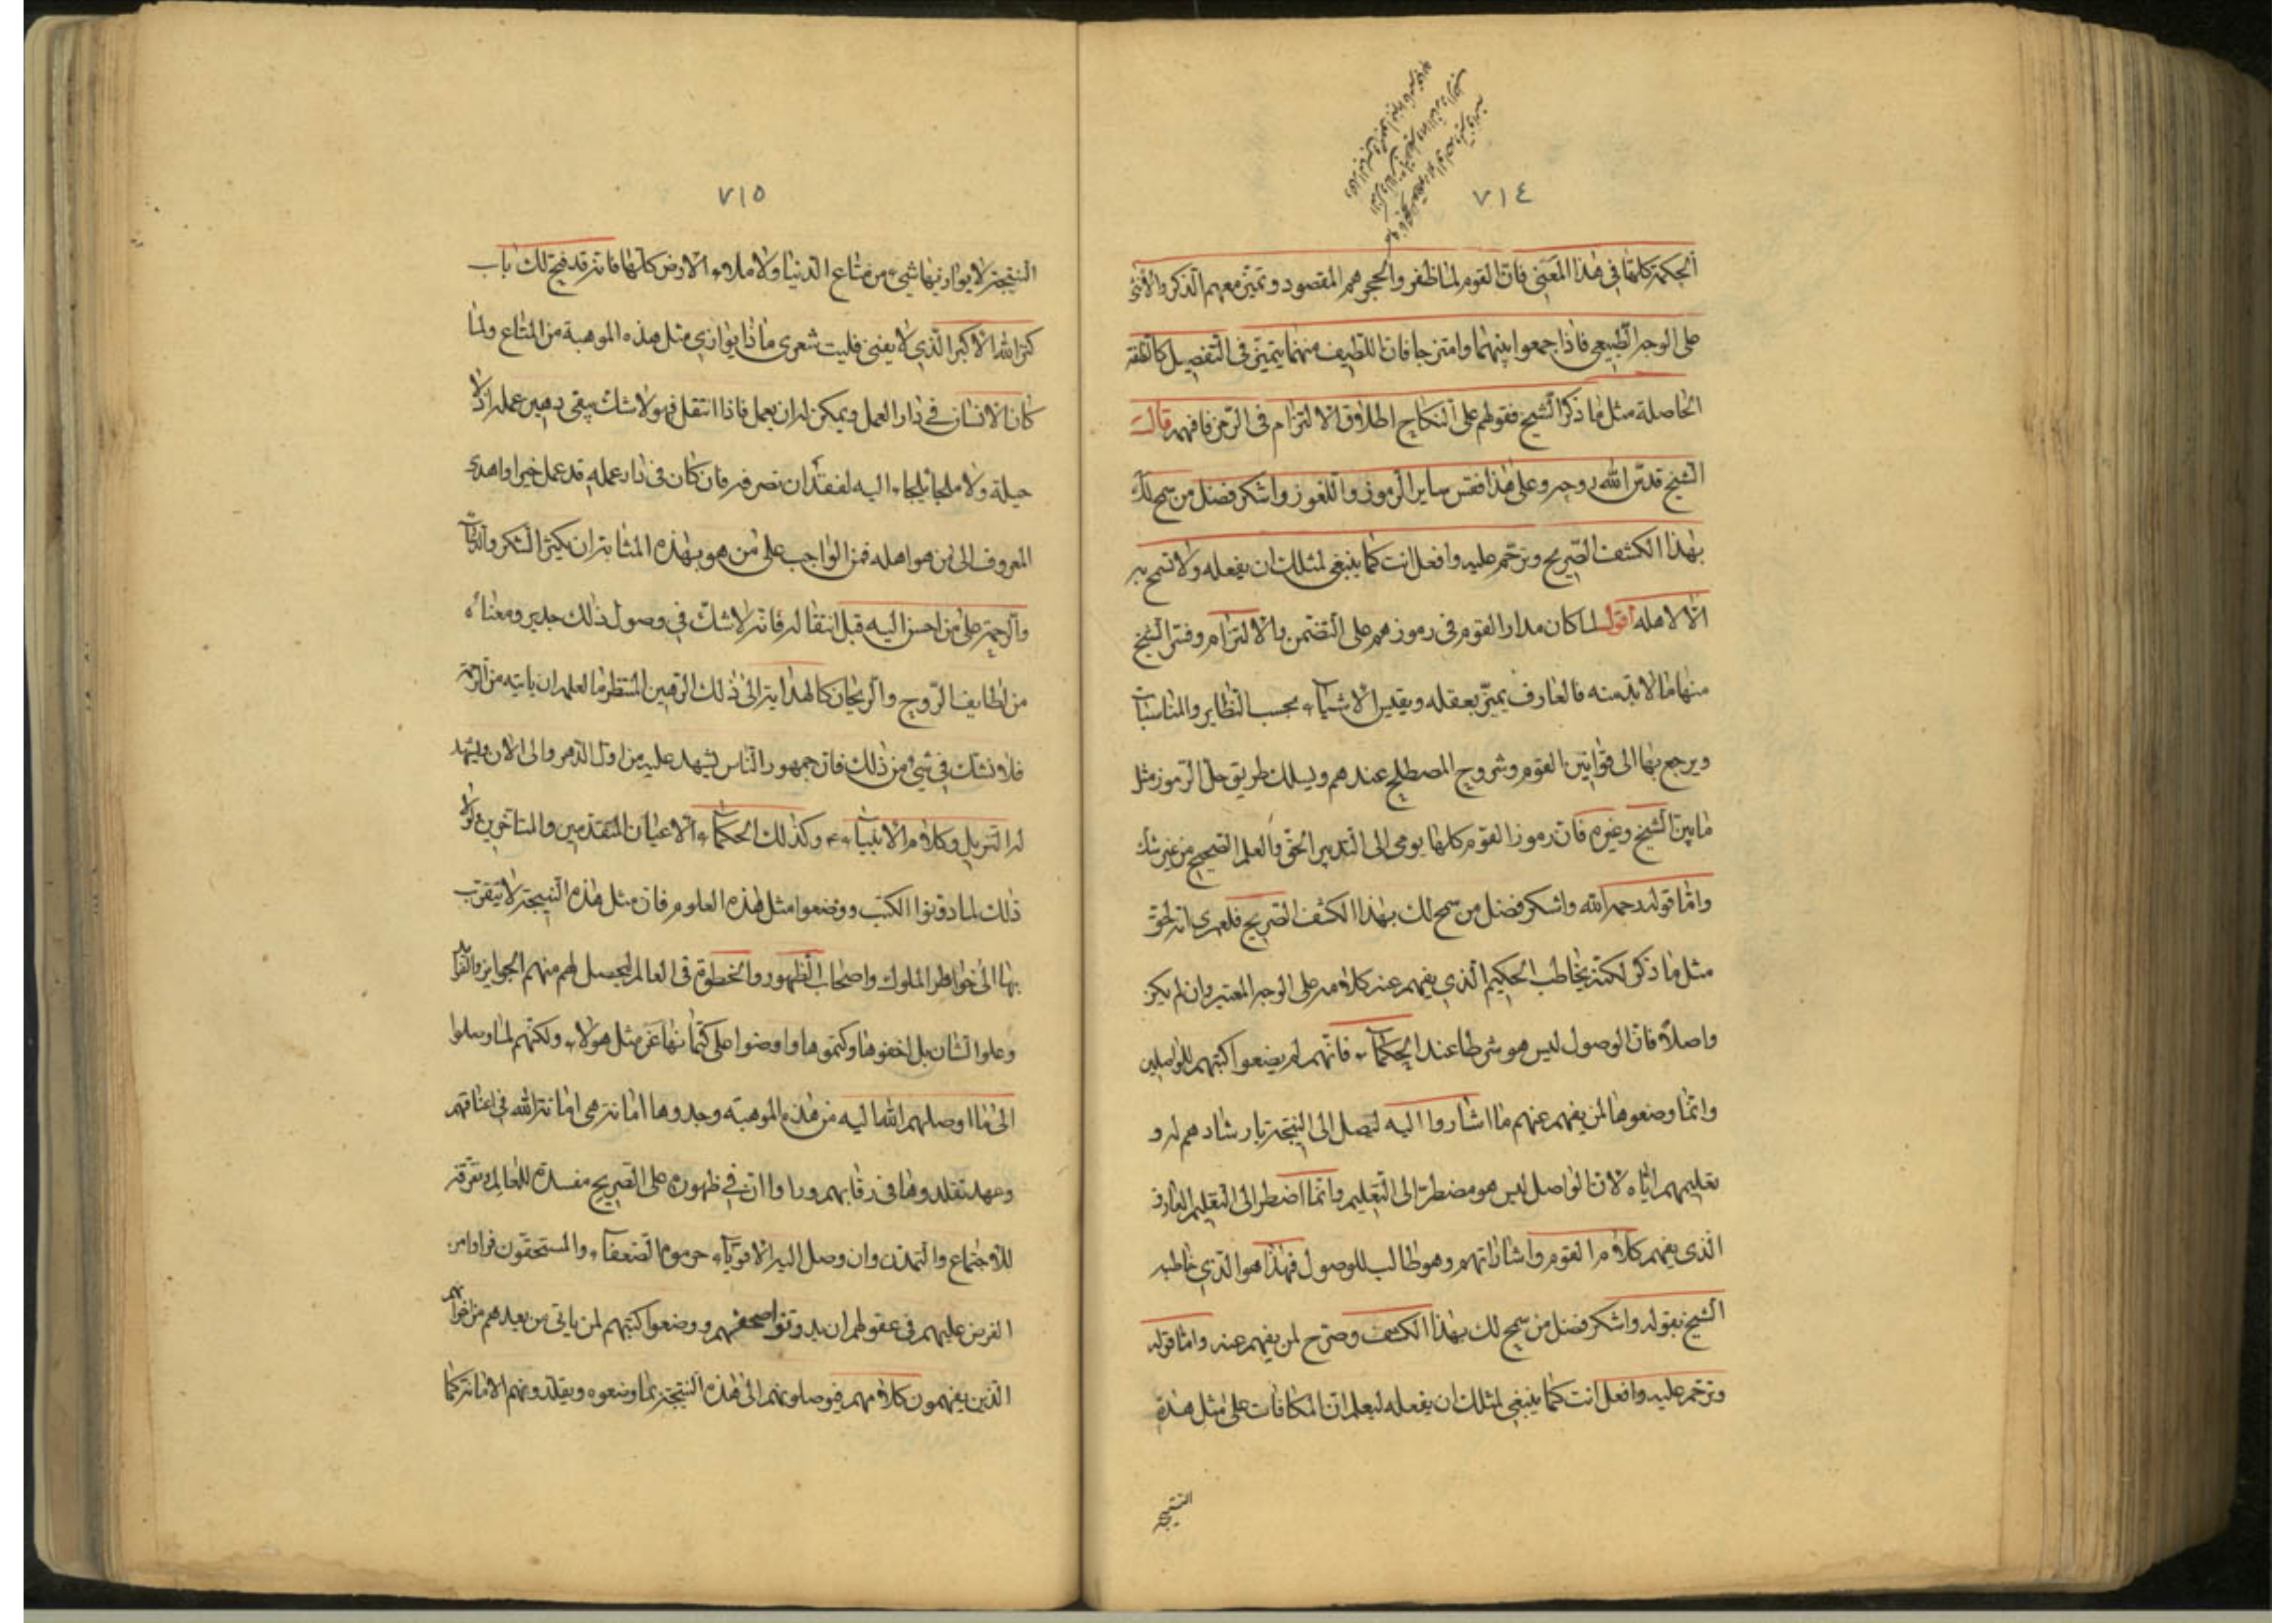 ٧١٤
الحكمة كلها في هذا المعنى فان القوم لما ظفروا بحجرهم المقصود وتميز معهم الذكر والأنثى
على الوجه الطبيعي فاذا جمعوا بينهما وامتزجا فان اللطيف منهما يتميز في التفصيل كالنطفة
الحاصلة مثل ما ذكر الشيخ فقولهم على النكاح اطلاق الالتزام في الرمز فافهم قال
الشيخ قدس الله روحه وعلى هذا فقس ساير الرموز واللغوز واشكر فضل من سمح لك
بهذا الكشف الصريح وترحم عليه وافعل انت كما ينبغي لمثلك ان يفعله ولا تسمح به
الا لاهله اقول لما كان مدار القوم في رموزهم على التضمن والالتزام وفسر الشيخ
منها ما لا بد منه فالعارف يميز بعقله ويقيس الاشياء بحسب النظاير والمناسبات
ويرجع بها الى قوانين القوم وشروح المصطلح عندهم ويسلك طريق حل الرموز مثل
ما بين الشيخ وغيره فان رموز القوم كلها يومى الى التدبير الحق والعلم الصحيح من غير شك
واما قوله رحمه الله واشكر فضل من سمح لك بهذا الكشف الصريح فلعمرى انه لحق
مثل ما ذكر لكنه يخاطب الحكيم الذي يفهم عنه كلامه على الوجه المعتبر وان لم يكن
واصلا فان الوصول ليس هو شرطا عند الحكماء فانهم لم يضعوا كتبهم للواصلين
وانما وضعوها لمن يفهم عنهم ما اشاروا اليه ليصل الى النتيجة بارشادهم له و
تعليمهم اياه لان الواصل ليس هو مضطر الى التعليم وانما اضطر الى التعليم العارف
الذي يفهم كلام القوم واشاراتهم وهو طالب للوصول فهذا هو الذي خاطبه
الشيخ بقوله واشكر فضل من سمح لك بهذا الكشف وصرح لمن يفهم عنه واما قوله
وترحم عليه وافعل انت كما ينبغي لمثلك ان يفعله ليعلم ان المكافات على مثل هذه
النتيجة
٧١٥
النتيجة لا يوازيها شيء من متاع الدنيا ولا ملاء الارض كلها فانه قد فتح لك باب
كنز الله الاكبر الذي لا يفنى فليت شعرى ماذا يوازي مثل هذه الموهبة من المتاع ولما
كان الانسان في دار العمل ويمكن له ان يعمل فاذا انتقل فهو لا شك يبقى رهين عمله اذ لا
حيلة ولا ملجأ يلجاء اليه لفقدان تصرفه فان كان في دار عمله قد عمل خيرا واهدى
المعروف الى من هو اهله فمن الواجب على من هو بهذه المثابة ان يكثر الشكر والدعاء
والرحمة على من احسن اليه قبل انتقاله فانه لا شك في وصول ذلك جديره ومعناه
من لطايف الروح والريحان كالهداية الى ذلك الرهين المنتظر ما لعله ان ياتيه من الرحمة
فلا نشك في شيء من ذلك فان جمهور الناس يشهد عليه من اول الدهر والى الان ويشهد
له التنزيل وكلام الانبياء وكذلك الحكماء الاعيان المتقدمين والمتاخرين ولولا
ذلك لما دونوا الكتب ووضعوا مثل هذه العلوم فان مثل هذه النتيجة لا يتقرب
بها الى خواطر الملوك واصحاب الظهور والخطوة في العالم ليحصل لهم منهم الجوايز والفوايد
وعلوا الشان بل اخفوها وكتموها واوصوا على كتمانها عن مثل هولاء ولكنهم لما وصلوا
الى ما اوصلهم الله اليه من هذه الموهبة وجدوها امانة هي امانة الله في اعناقهم
وعهد تقلدوها في رقابهم وراوا ان في ظهوره على التصريح مفسدة للعالم وتفرقة
للاجتماع والتمدن وان وصل اليه الاقوياء حرموا الضعفاء والمستحقون فراوا من
الفرض عليهم في عقولهم ان يدونوا صحفهم ووضعوا كتبهم لمن ياتي من بعدهم من اخوانهم
الذين يفهمون كلامهم فيوصلونهم الى هذه النتيجة بما وضعوه ويقلدونهم الامانة كما